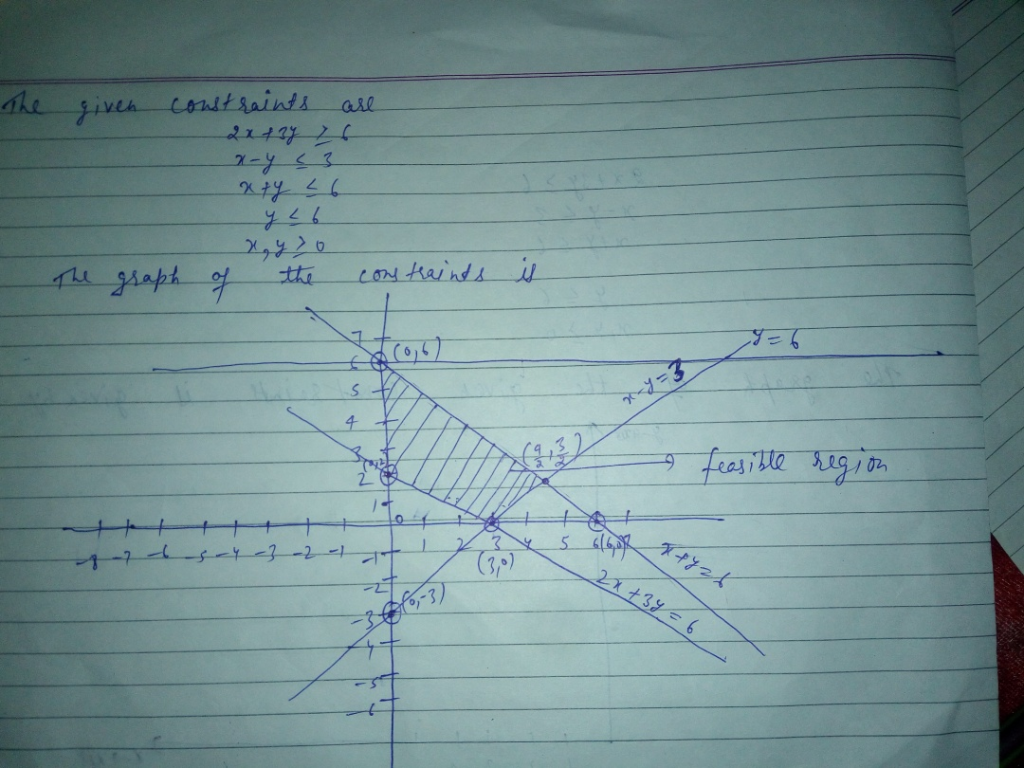 The given constraints are
2x+3y ≥ 6
x-y ≤ 3
x+y ≤ 6
y ≤ 6
x, y ≥ 0
The graph of the constraints is
7
(0,6)
y=6
6
x-y=3
5
4
3
(9/2, 3/2)
feasible region
2
1
0
-8 -7 -6 -5 -4 -3 -2 -1 1 2 3 4 5 6 (6,0) 7
(3,0)
x+y=6
-1
-2
2x+3y=6
(0,-3)
-3
-4
-5
-6